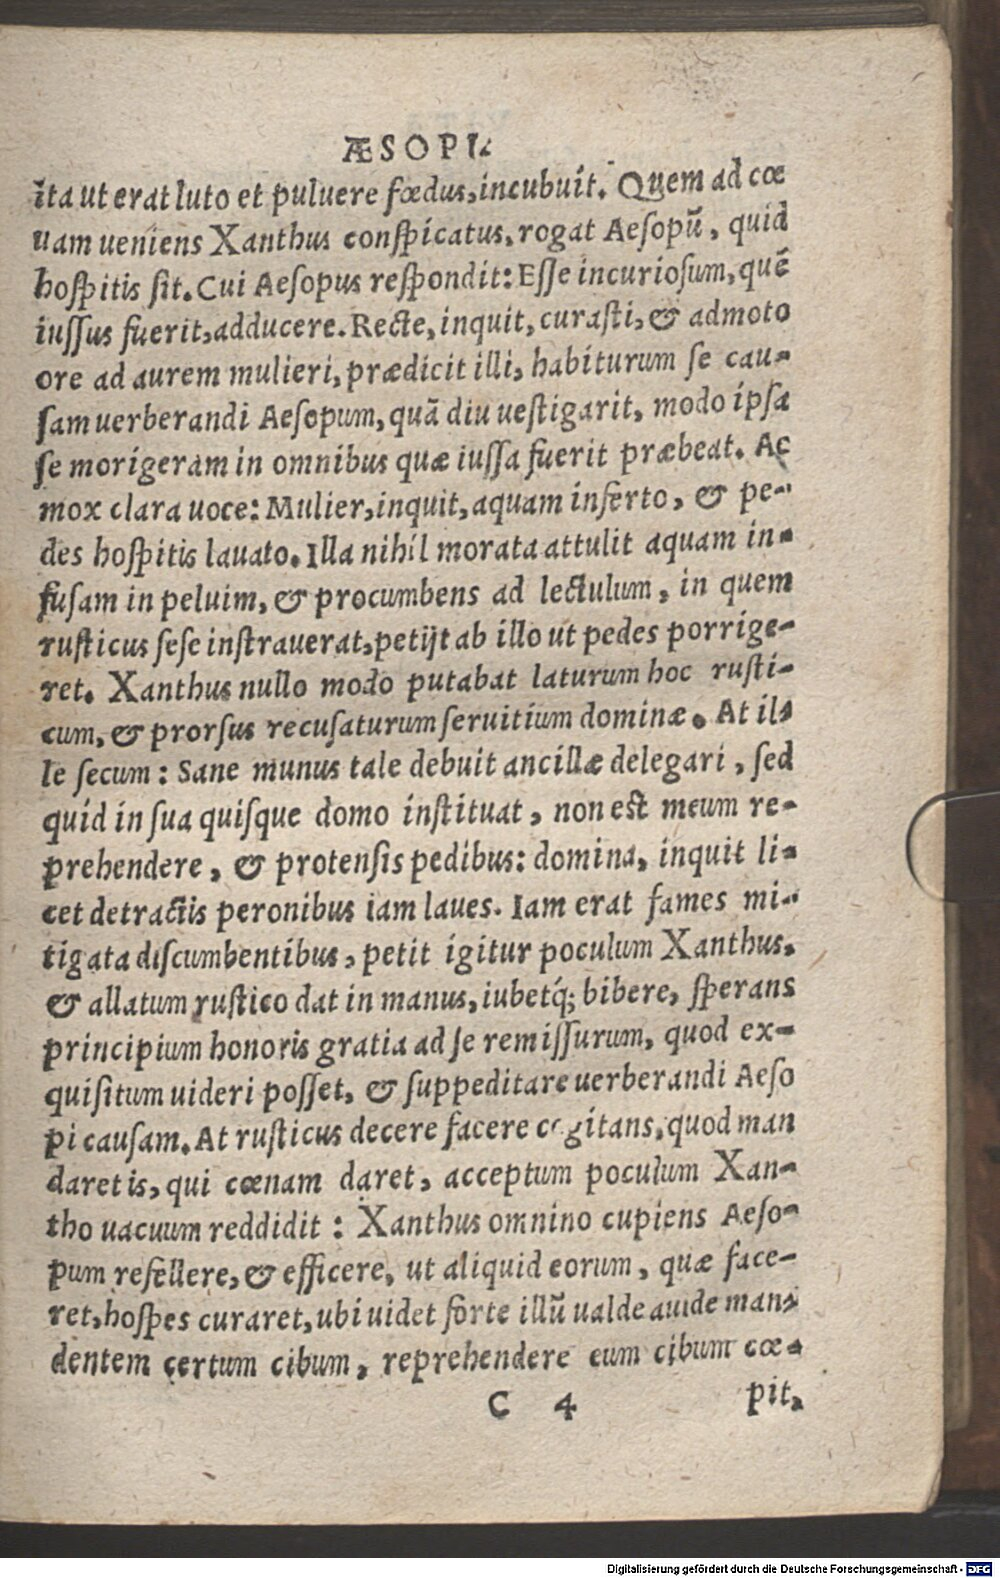 ÆSOPI.
ita ut erat luto et puluere fœdus, incubuit. Quem ad cœ
nam ueniens Xanthus conspicatus, rogat Aesopū, quid
hospitis sit. Cui Aesopus respondit: Esse incuriosum, quē
iussus fuerit, adducere. Recte, inquit, curasti, & admoto
ore ad aurem mulieri, prædicit illi, habiturum se cau-
sam uerberandi Aesopum, quā diu uestigarit, modo ipsa
se morigeram in omnibus quæ iussa fuerit præbeat. Ac
mox clara uoce: Mulier, inquit, aquam inferto, & pe-
des hospitis lauato. Illa nihil morata attulit aquam in-
fusam in peluim, & procumbens ad lectulum, in quem
rusticus sese instrauerat, petijt ab illo ut pedes porrige-
ret. Xanthus nullo modo putabat laturum hoc rusti-
cum, & prorsus recusaturum seruitium dominæ. At il-
le secum: Sane munus tale debuit ancillæ delegari, sed
quid in sua quisque domo instituat, non est meum re-
prehendere, & protensis pedibus: domina, inquit li-
cet detractis peronibus iam laues. Iam erat fames mi-
tigata discumbentibus, petit igitur poculum Xanthus,
& allatum rustico dat in manus, iubetq́; bibere, sperans
principium honoris gratia ad se remissurum, quod ex-
quisitum uideri posset, & suppeditare uerberandi Aeso
pi causam. At rusticus decere facere cogitans, quod man
daret is, qui cœnam daret, acceptum poculum Xan-
tho uacuum reddidit: Xanthus omnino cupiens Aeso-
pum refellere, & efficere, ut aliquid eorum, quæ face-
ret, hospes curaret, ubi uidet forte illū ualde auide man-
dentem certum cibum, reprehendere eum cibum cœ-
C 4 pit,
Digitalisierung gefördert durch die Deutsche Forschungsgemeinschaft - DFG